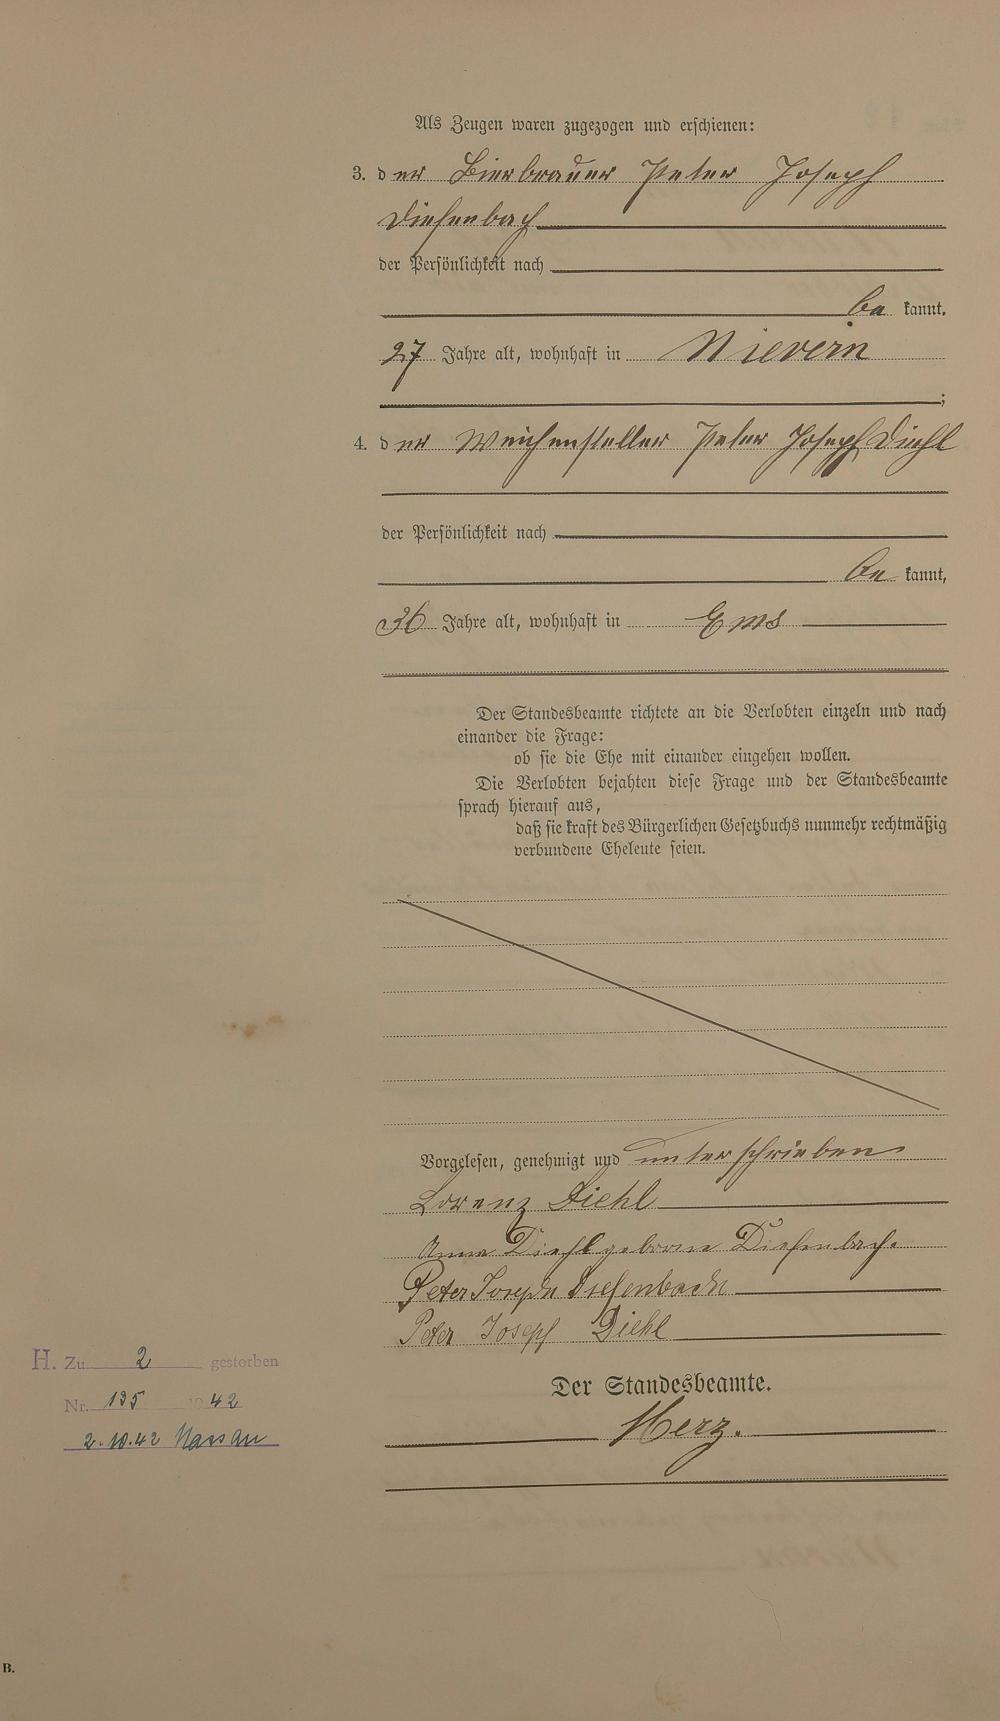 Als Zeugen waren zugezogen und erschienen:
3. der Bierbrauer Peter Joseph
Diefenbach
der Persönlichkeit nach
be kannt,
27 Jahre alt, wohnhaft in Nievern
;
4. der Weichensteller Peter Joseph Diehl
der Persönlichkeit nach
be kannt,
36 Jahre alt, wohnhaft in Ems
Der Standesbeamte richtete an die Verlobten einzeln und nach
einander die Frage:
ob sie die Ehe mit einander eingehen wollen.
Die Verlobten bejahten diese Frage und der Standesbeamte
sprach hierauf aus,
daß sie kraft des Bürgerlichen Gesetzbuchs nunmehr rechtmäßig
verbundene Eheleute seien.
Vorgelesen, genehmigt und unterschrieben
Lorenz Diehl
Anna Diehl geborne Diefenbach.
Peter Joseph Diefenbach
Peter Joseph Diehl
Der Standesbeamte.
Merz.
H. Zu 2 gestorben
Nr. 135 1942
2.10.42 Nassau
B.